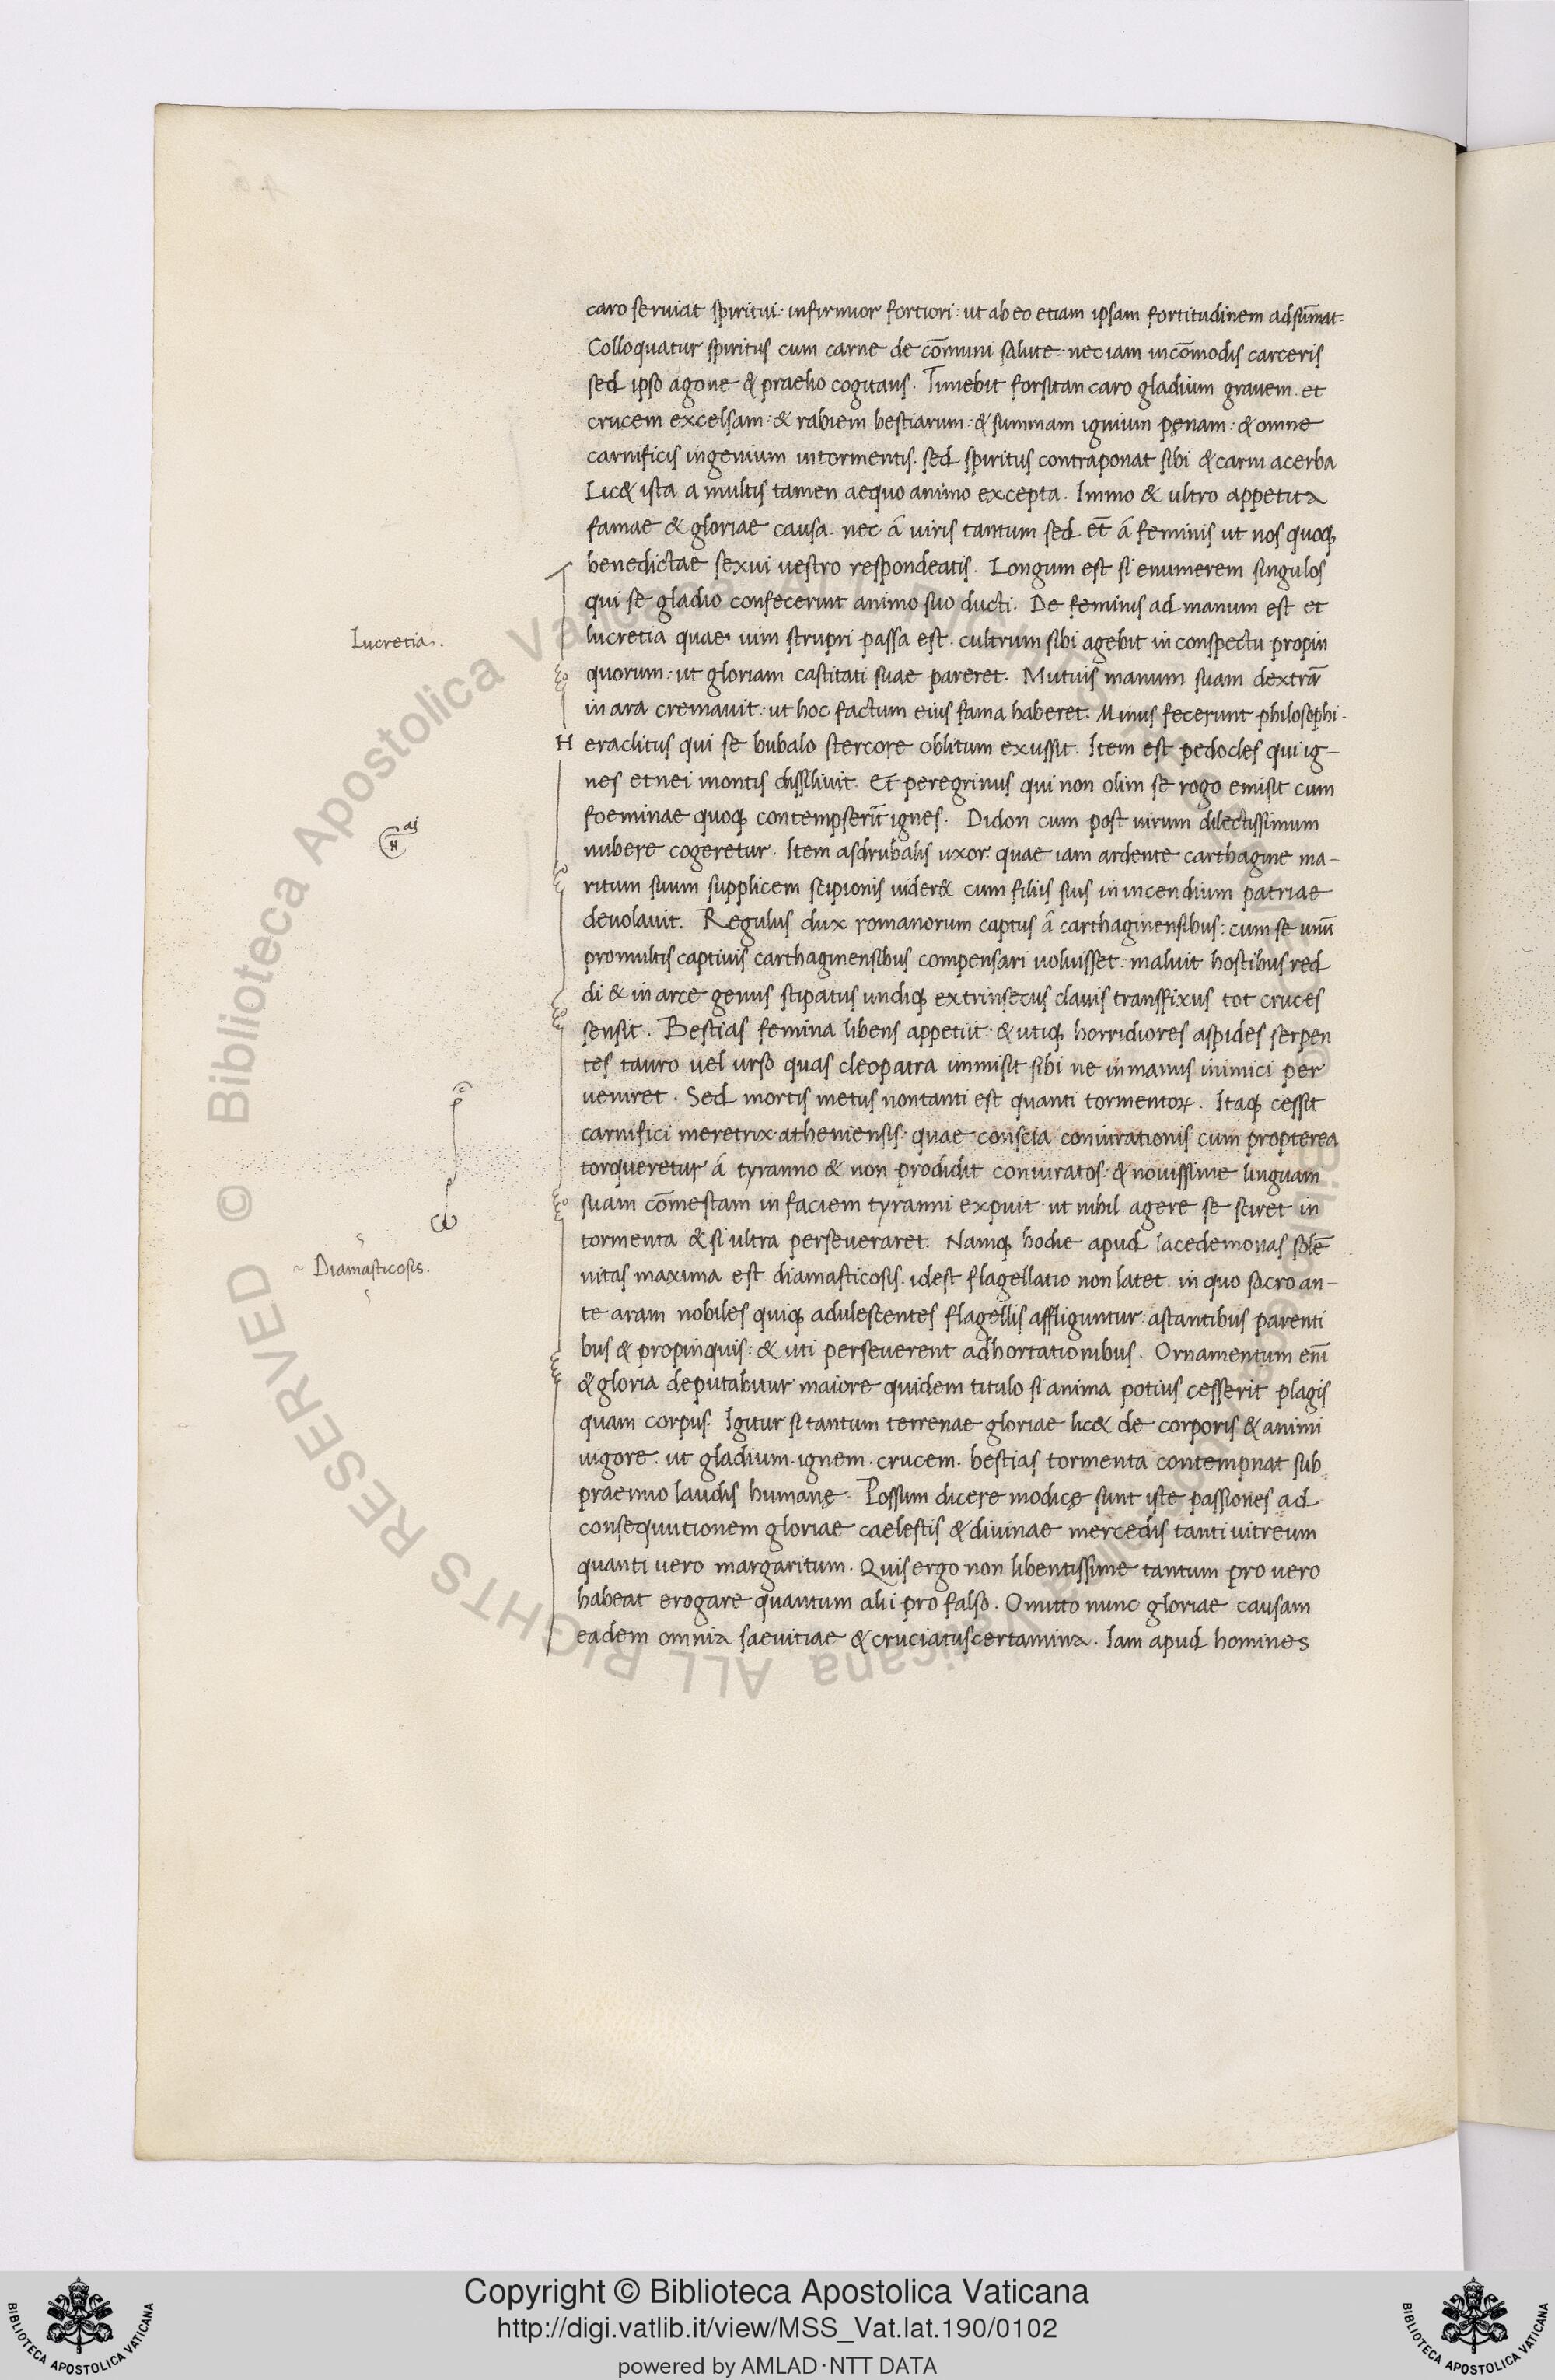 caro seruiat spiritui: infirmior fortiori: ut ab eo etiam ipsam fortitudinem adsūmat.
Colloquatur spiritus cum carne de cōmuni salute: nec iam incōmodis carceris
sed ipso agone & praelio cogitans. Timebit forsitan caro gladium grauem. et
crucem excelsam: & rabiem bestiarum: & summam ignium pęnam: & omne
carnificis ingenium in tormentis. sed spiritus contraponat sibi & carni acerba
Lic& ista a multis tamen aequo animo excepta. Immo & ultro appetita
famae & gloriae causa. nec á uiris tantum sed et̄ á feminis ut nos quoq;
benedictae sexui uestro respondeatis. Longum est si enumerem singulos
qui se gladio confecerint animo suo ducti. De feminis ad manum est et
Lucretia.
lucretia quae uim strupri passa est. cultrum sibi agebit in conspectu propin
quorum: ut gloriam castitati suae pareret. Mutuis manum suam dextrā
in ara cremauit: ut hoc factum eius fama haberet. Minus fecerunt philosophi.
Heraclitus qui se bubalo stercore oblitum exussit. Item est pedocles qui ig-
nes etnei montis dissiliuit. Et peregrinus qui non olim se rogo emisit cum
foeminae quoq; contempserīt ignes. Didon cum post uirum dilectissimum
nubere cogeretur. Item asdrubalis uxor quae iam ardente carthagine ma-
ritum suum supplicem scipionis uider& cum filiis suis in incendium patriae
deuolauit. Regulus dux romanorum captus á carthaginensibus: cum se unū
pro multis captiuis carthaginensibus compensari uoluisset: maluit hostibus red
di & in arce genus stipatus undiq; extrinsecus clauis transfixus tot cruces
sensit. Bestias femina libens appetiit: & utiq; horridiores aspides serpen
tes tauro uel urso quas cleopatra immisit sibi ne in manus inimici per
ueniret. Sed mortis metus non tanti est quanti tormentoꝝ. Itaq; cessit
carnifici meretrix atheniensis: quae conscia coniurationis cum propterea
torqueretur á tyranno & non prodidit coniuratos: & nouissime linguam
suam cōmestam in faciem tyranni expuit: ut nihil agere se sciret in
tormenta & si ultra perseueraret. Namq; hodie apud lacedemonas solē
Diamasticosis.
nitas maxima est diamasticosis. idest flagellatio non latet. in quo sacro an-
te aram nobiles quiq; adulescentes flagellis affliguntur: astantibus parenti
bus & propinquis: & uti perseuerent adhortationibus. Ornamentum enī
& gloria deputabitur maiore quidem titulo si anima potius cesserit plagis
quam corpus. Igitur si tantum terrenae gloriae lic& de corporis & animi
uigore: ut gladium. ignem. crucem. bestias tormenta contempnat sub
praemio laudis humanę. Possum dicere modicę sunt iste passiones ad
consequutionem gloriae caelestis & diuinae mercedis tanti uitreum
quanti uero margaritum. Quis ergo non libentissime tantum pro uero
habeat erogare quantum alii pro falso. Omitto nunc gloriae causam
eadem omnia saeuitiae & cruciatus certamina. Iam apud homines
© Biblioteca Apostolica Vaticana ALL RIGHTS RESERVED
Copyright © Biblioteca Apostolica Vaticana
http://digi.vatlib.it/view/MSS_Vat.lat.190/0102
powered by AMLAD·NTT DATA
BIBLIOTECA APOSTOLICA VATICANA
BIBLIOTECA APOSTOLICA VATICANA